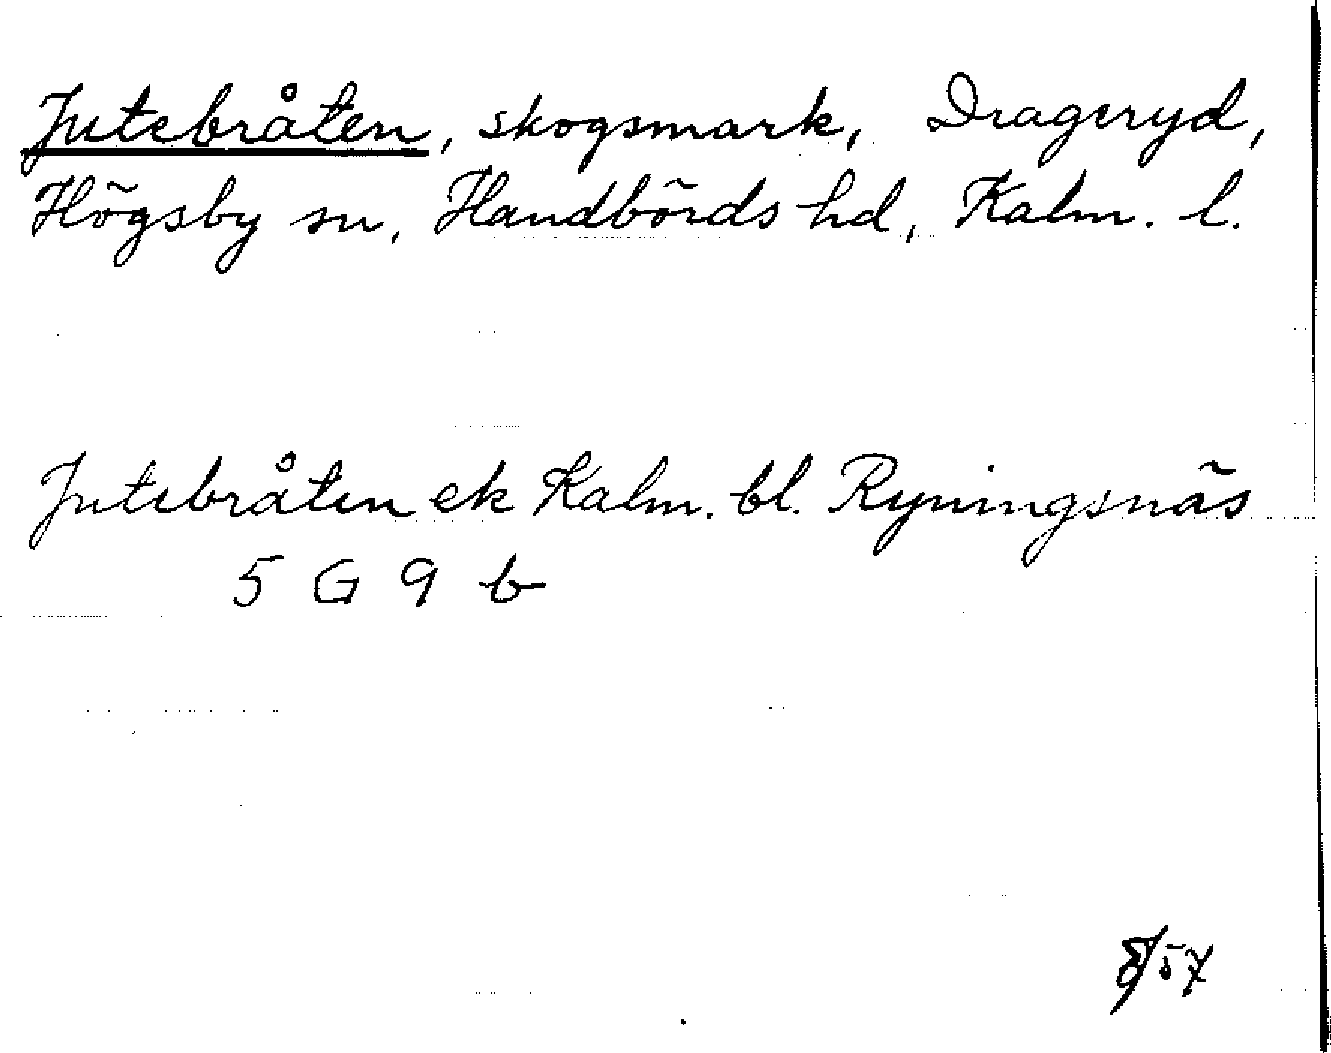 Jutebråten, skogsmark, Drageryd,
Högsby sn, Handbörds hd, Kalm. l.
Jutebråten ek Kalm. bl. Ryningsnäs
5 G 9 b
8/57